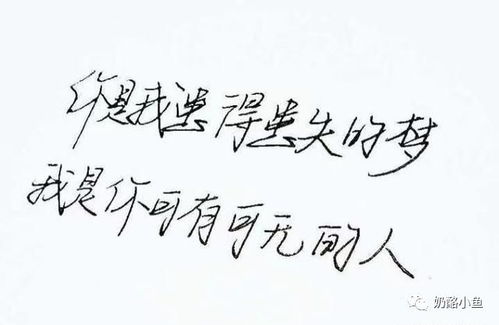 你是我患得患失的梦
我是你可有可无的人
奶酪小鱼